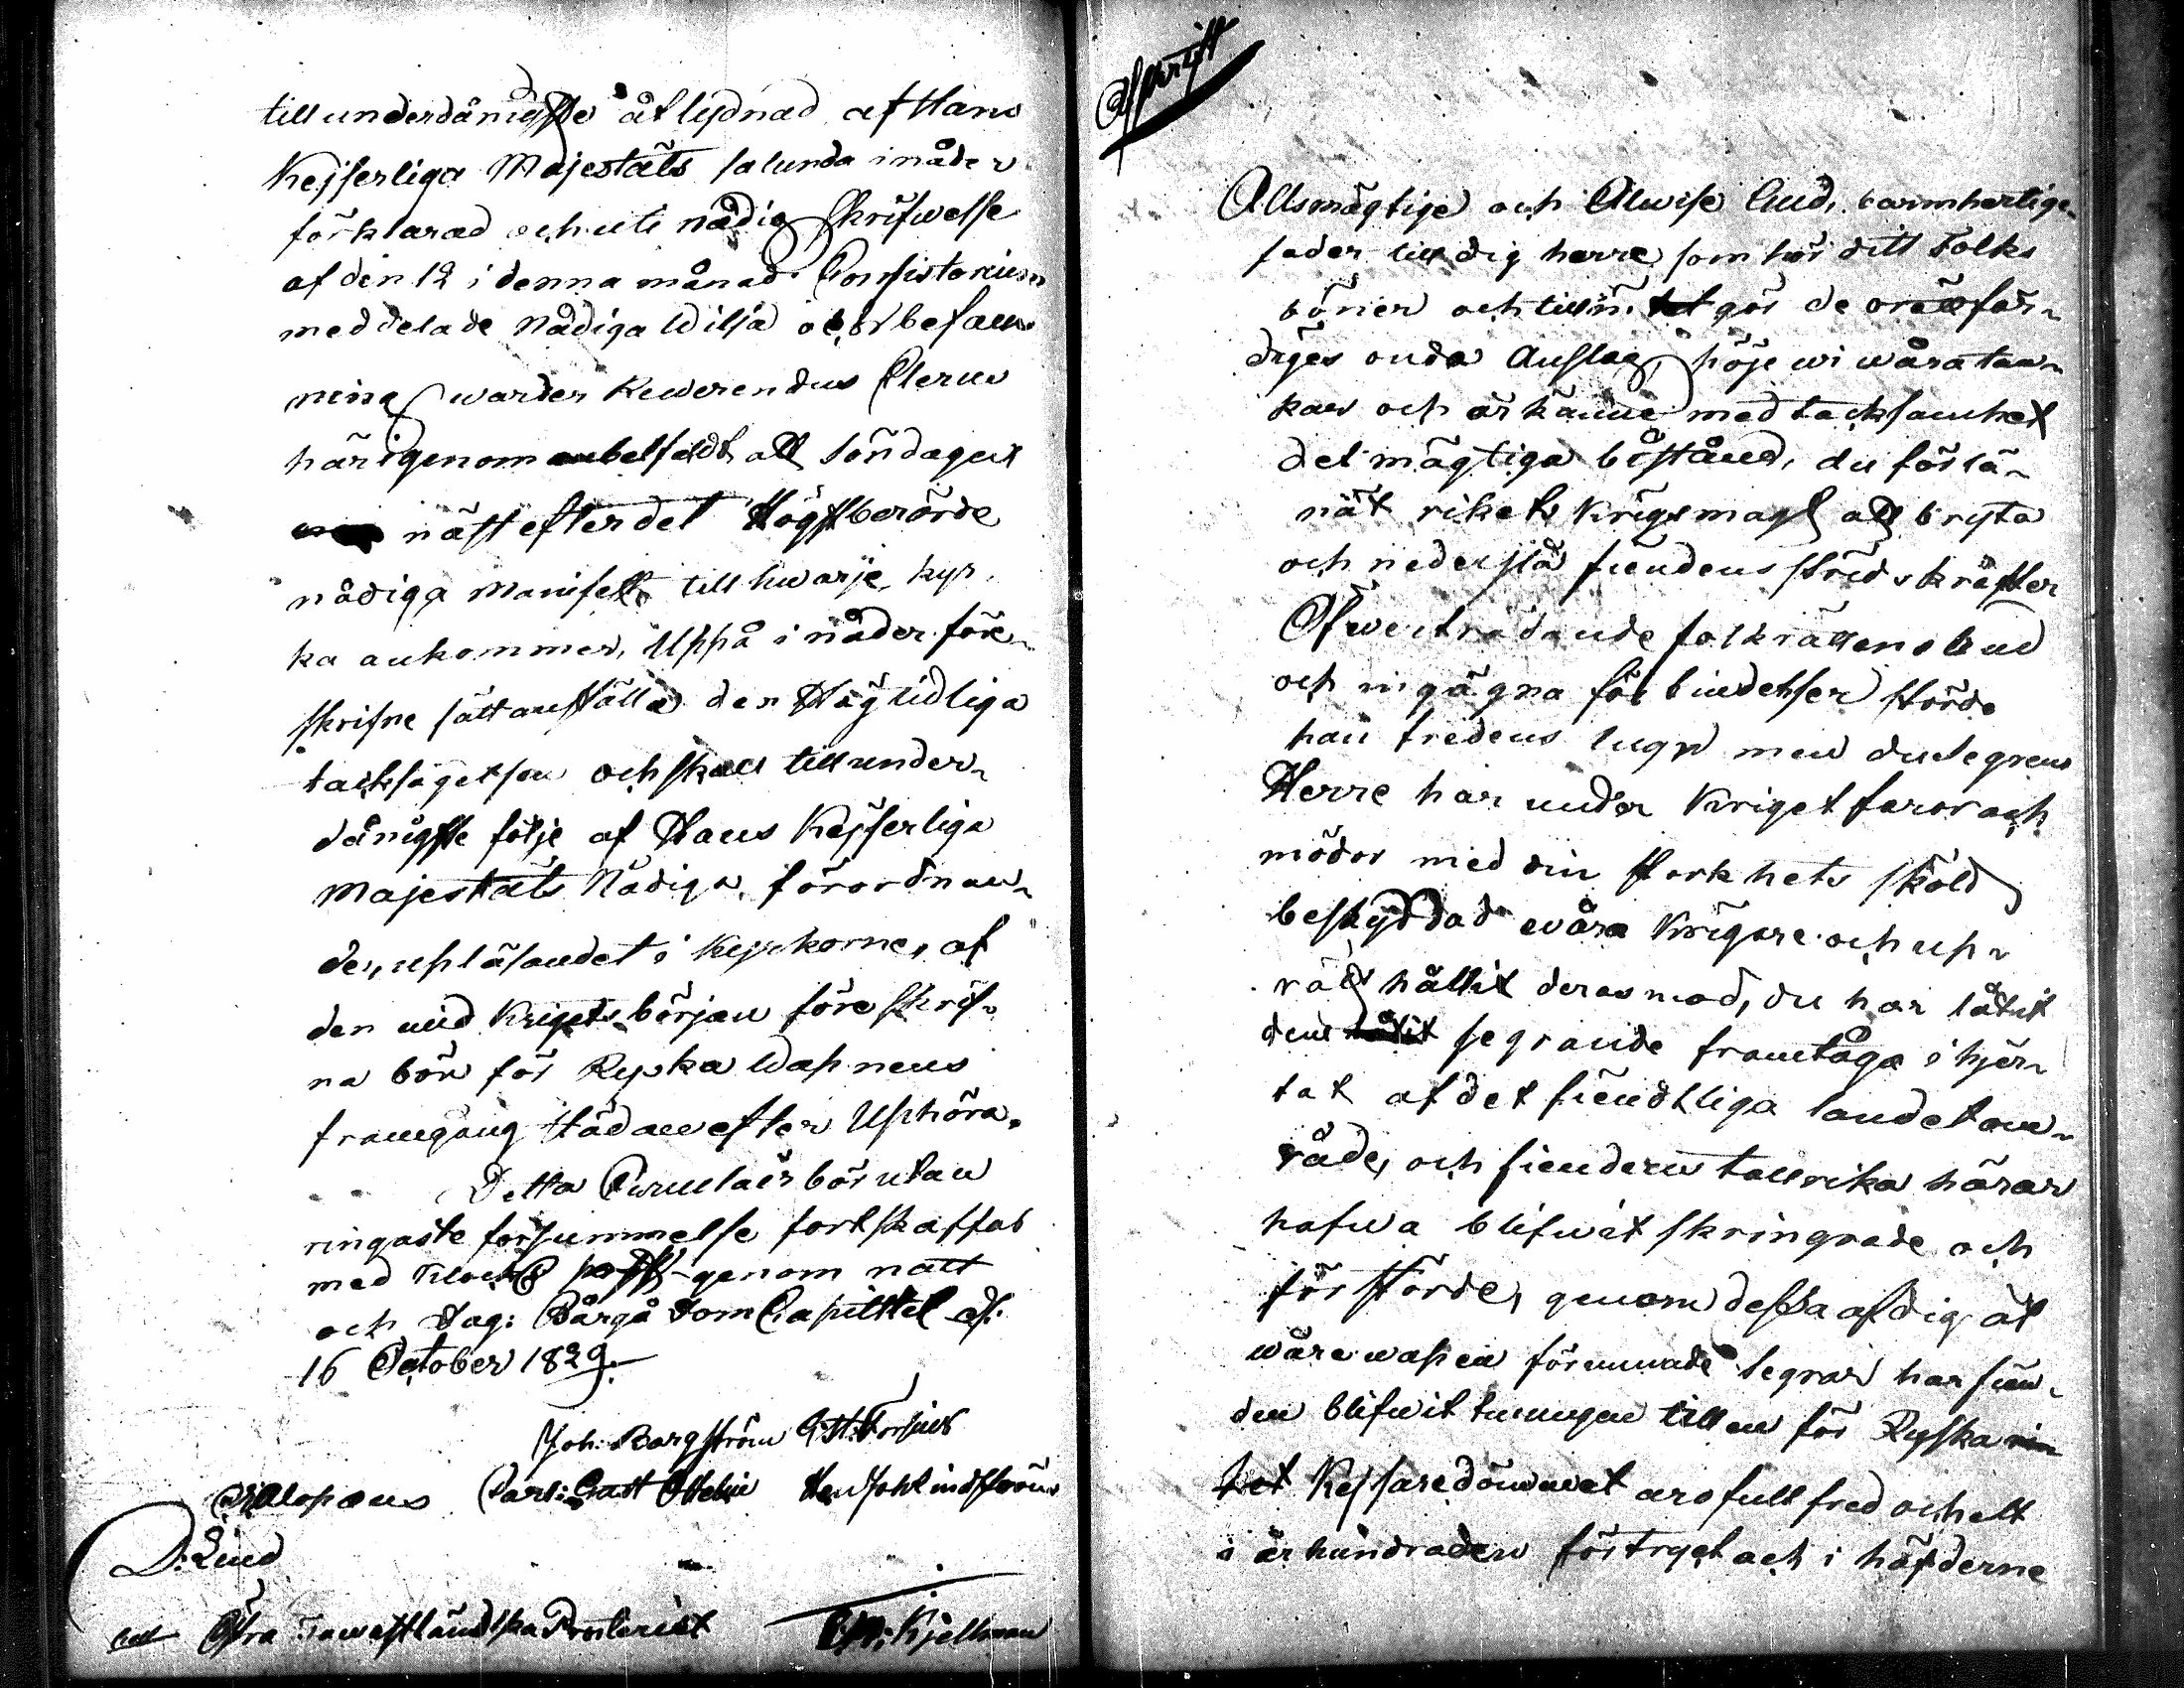 till underdånigste åtlydnad af Hans
Kejserliga Majestäts salunda i nåder
förklarad och uti nådig Skrifwelse
af den 12 i denna månad Consistorium
meddelade Nådiga Wilja och befall
ning warder Reverendus Clerus
härigenom anbefaldt att Söndagen
näst efter det Högstberörde
nådiga Manifest till hwarje kyr
ka ankommer, Uppå i nåder före
skrifne sätt anställa den Högtidliga
tacksägelsen och skall till under
dånigste följe af Hans Kejserliga
Majestäts Nådiga förordnan
de, uplåsandet i Kyrkorne, af
den wid Krigets början före skrif
na bön för Ryska Wapnens
framgång städan efter Uphöra.
Detta Circulair bör utan
ringaste försummelse fortskaffas
med Klock genom natt
och dag: Bårgå Dom Capittel d.
16 October 1829.
Joh. Borgström G. H. Forsius
Alopæus Carl: Gust Ottelin Hen Joh Lindström
D: Lind
till Östra Tawastländska Prosteriet C. M: Kjellman
Afskrift
Allsmägtige och Alwise Gud, barmhertige
fader till dig herre som hör ditt Folks
böner och till intet gör de orättfär
diges onda Anslag, höje wi wåra tan
kar och ärkänne med tacksamhet
det mägtiga bistånd, du förlä
nat rikets Krigsmagt att bryta
och nederslå fiendens stridskräfter
Öfwerträdande folkrättens bud
och ingågna förbindelser störde
han fredens lugn men du segrens
Herre har under Kriget faror och
mödor med din starkhets sköld
beskyddad wåra Krigare och up
rätt hållit deras mod, du har låtit
dem segrande framtåga i hjer
tat af det fiendtliga landet om
råde, och fiendens tallrika härar
hafwa blifwit skringrade och
förstörde, genom dessa af dig åt
wåre wapen förunnade segrar har fien
den blifwit twungen till en för Ryska
Kejsaredömmet ärofull fred och ett
i århundraden förtryckt och i häfderne